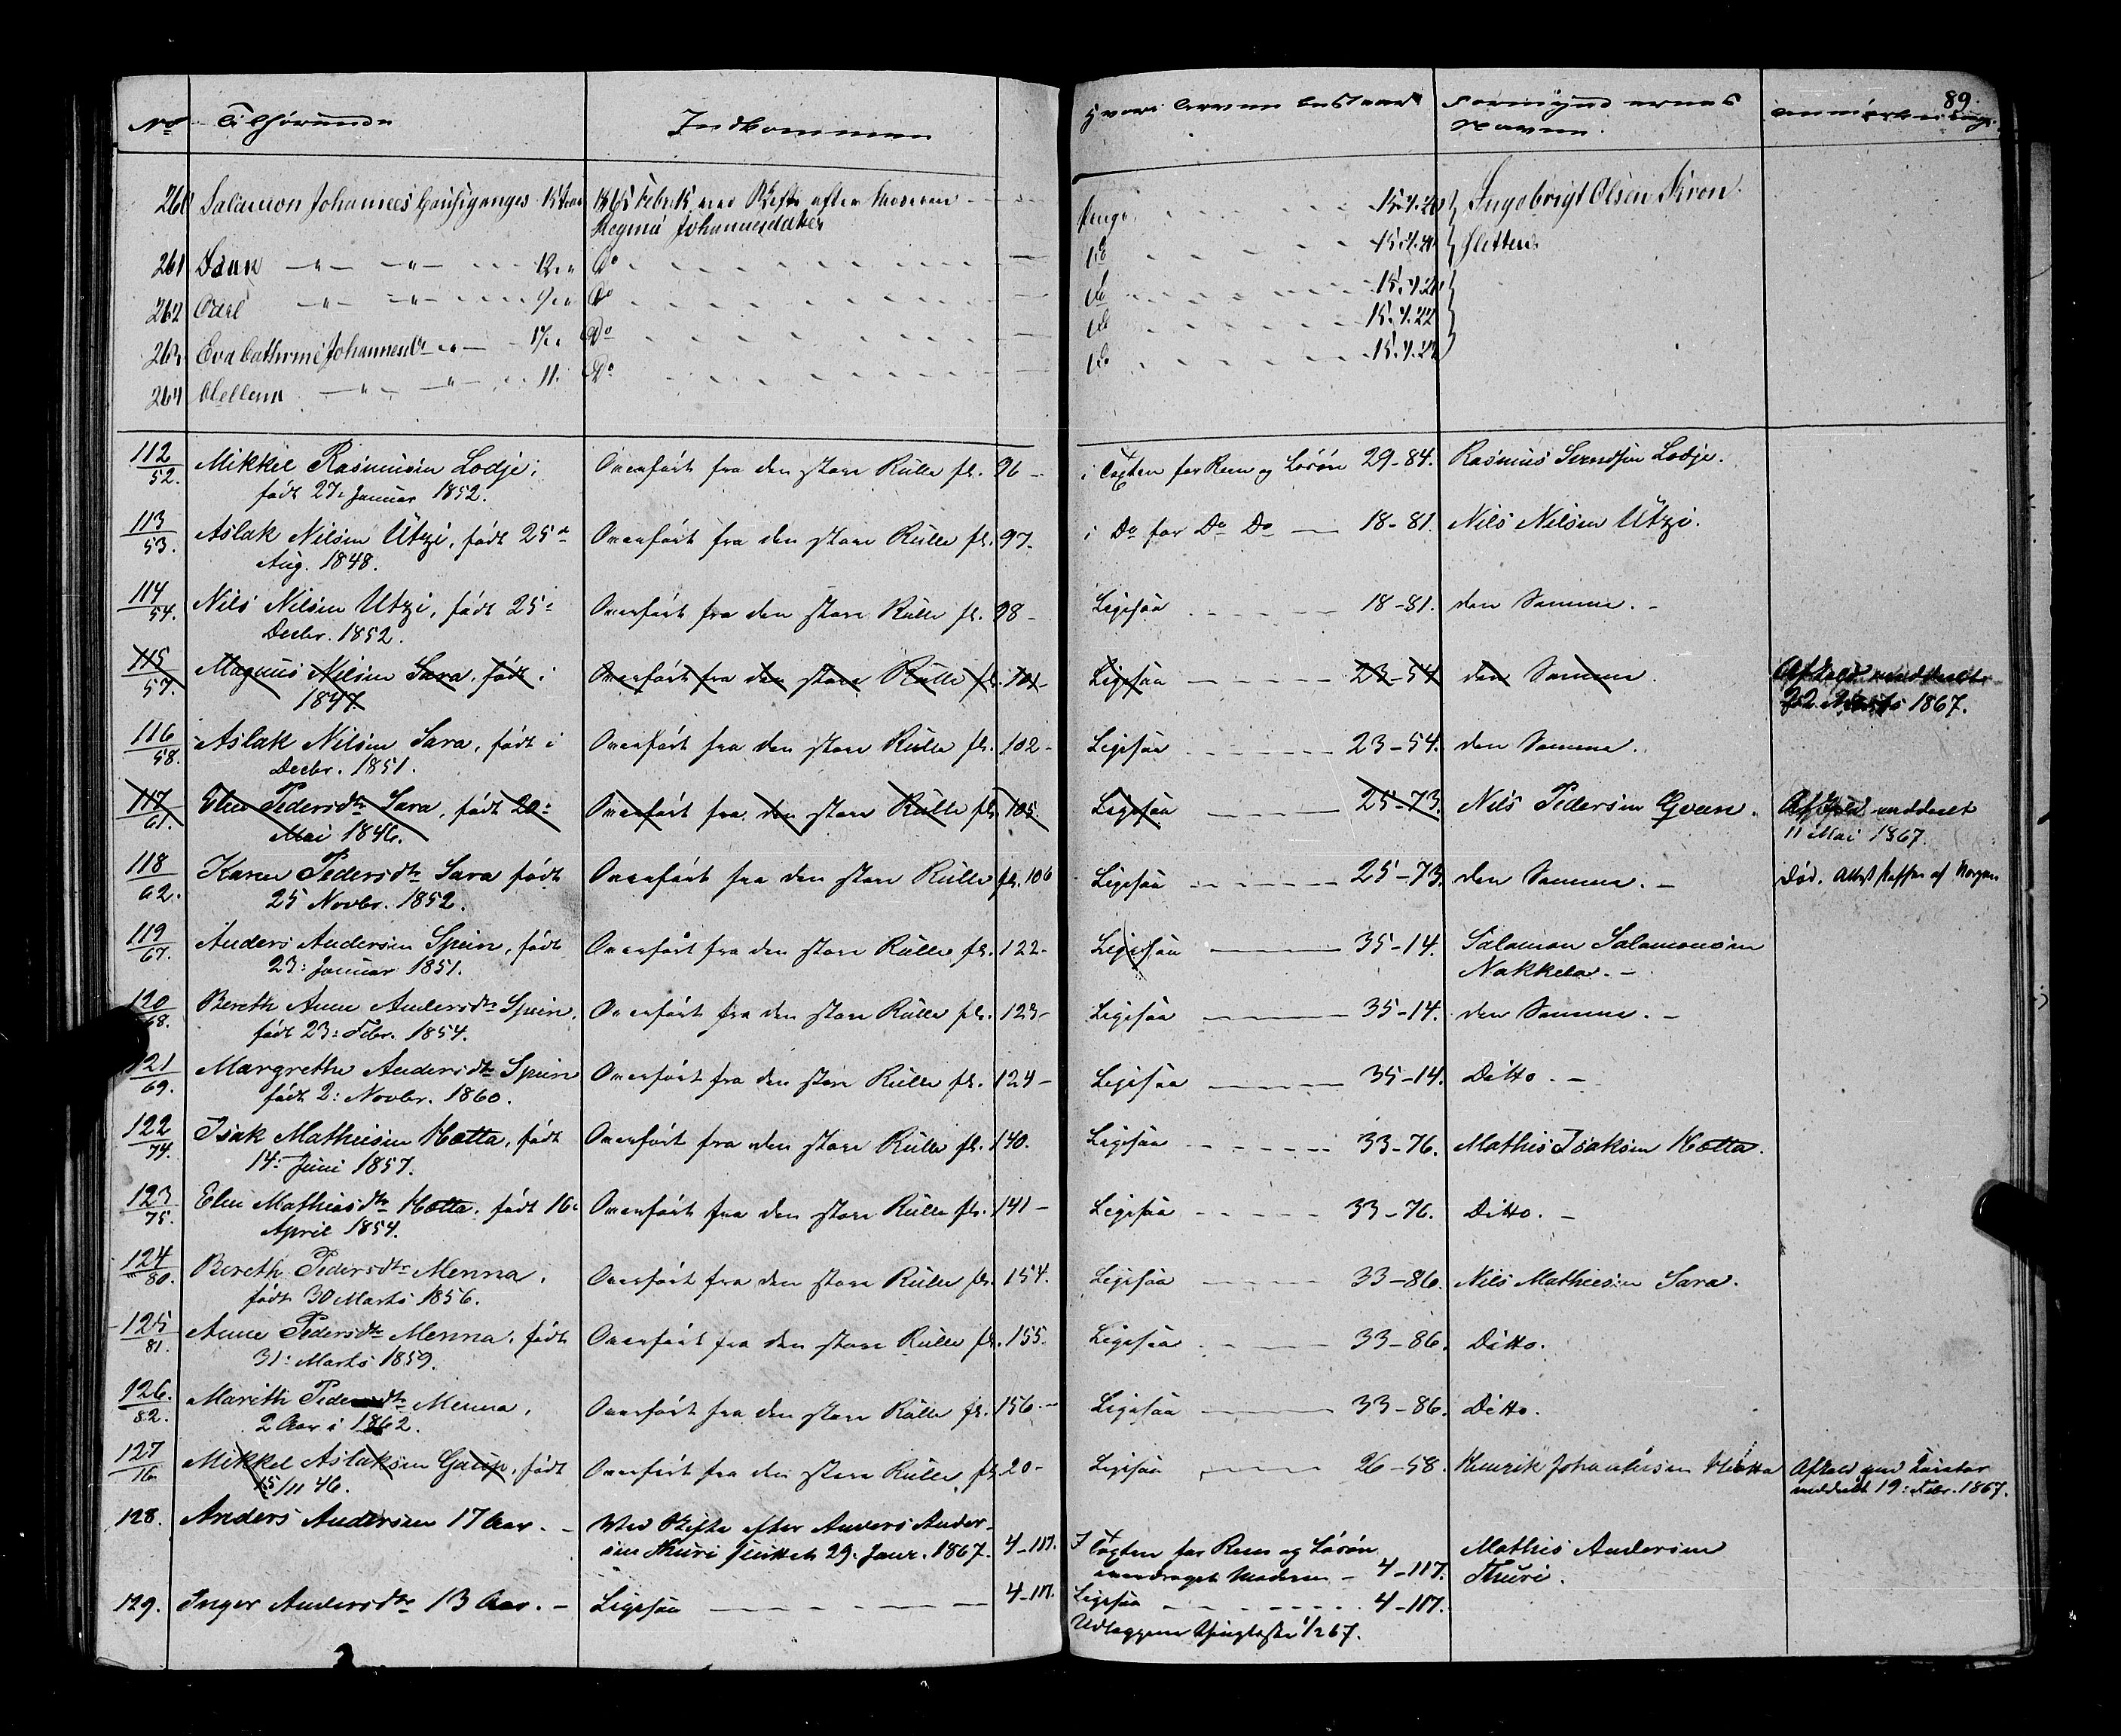 89.
No Tilhørende Indkommen Hvori Arven bestaar Formyndernes Anmærkninger.
Navne.
260 Salamon Johannes 15 Febr. 15 ved Skifte efter Moderen Penge 15.1.20 Ingebrigt Olsen Kron
Johannesdatter
261 12 Do Do Sletten
262 Carl Do Do 15.1.21
263 Eva Cathrine Johannesdr Do Do 15.1.22
264 Ellen 11. Do Do
112/52. Mikkel Rasmusen Lodje, Overført fra den store Rulle fl. 96 - i Tagten for Reen og Løsøre 29-84. Rasmus Svendsen Lodje.
født 27: Januar 1852.
113/53. Aslak Nilsen Utzi, født 25de Overført fra den store Rulle fl. 97- i Do for Do Do 18-81. Nils Nilsen Utzi.
Aug. 1848.
114/54. Nils Nilsen Utzi, født 25: Overført fra den store Rulle fl. 98 - Ligesaa 18-81. den Samme. -
Decbr. 1852.
115/57. Magnus Nilsen Sara, født i Overført fra den store Rulle fl. 101- Ligesaa 23-54 den Samme. Afkald meddeelt
1847. 22 Marts 1867.
116/58. Aslak Nilsen Sara, født i Overført fra den store Rulle fl. 102- Ligesaa 23-54. den Samme.
Decbr. 1851.
117/61. Elen Pedersdtr Sara, født 20: Overført fra den store Rulle fl. 105. Ligesaa 25-73. Nils Pedersen Qvæn. Afkald meddeelt
Mai 1846. 11 Mai 1867.
118/62. Karen Pedersdtr Sara født Overført fra den store Rulle fl. 106 Ligesaa 25-73. den Samme. - Død.
25 Novbr. 1852.
119/67. Anders Andersen Spein, født Overført fra den store Rulle fl. 122- Ligesaa 35-14. Salamon Salamonsen
23: Januar 1851. Nakkela. -
120/68. Bereth Anne Andersdtr Spein, Overført fra den store Rulle fl. 123- Ligesaa 35-14. den Samme. -
født 23: Febr. 1854.
121/69. Margrethe Andersdtr Spein Overført fra den store Rulle fl. 124- Ligesaa 35-14. Ditto. -
født 2: Novbr. 1860.
122/74. Isak Mathisen Hætta, født Overført fra den store Rulle fl. 140. Ligesaa 33-76. Mathis Isaksen Hætta.
14: Juni 1857.
123/75. Elen Mathisdtr Hætta, født 16: Overført fra den store Rulle fl. 141- Ligesaa 33-76. Ditto. -
April 1854.
124/80. Bereth Pedersdtr Menna, Overført fra den store Rulle fl. 154. Ligesaa 33-86. Nils Mathisen Sara.
født 30 Marts 1856.
125/81. Anne Pedersdtr Menna, født Overført fra den store Rulle fl. 155. Ligesaa 33-86. Ditto.
31: Marts 1859.
126./82. Marith Pedersdtr Menna, Overført fra den store Rulle fl. 156.- Ligesaa 33-86. Ditto.
2 Aar i 1862.
127/16 Mikkel Aslaksen Gaup, født Overført fra den store Rulle fl. 20- Ligesaa 26-58. Henrik Johannesen Hætta Afkald med Curator
15/11 46. meddeelt 19: Febr. 1867.
128. Anders Andersen 17 Aar. - Ved Skifte efter Anders Ander-
sen Thuri sluttet 29. Janr. 1867. 4-117. I Tagten for Reen og Løsøre Mathis Andersen
overdraget Moderen - 4-117. Thuri.
129. Inger Andersdtr 13 Aar. - Ligesaa 4-117. Ligesaa 4-117.
Udlæggene 1/2 67.